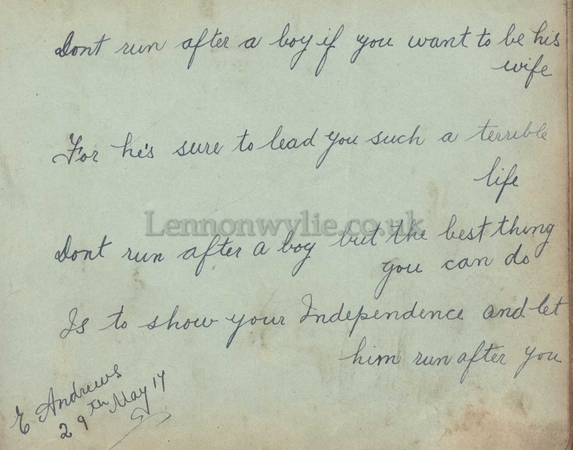 Dont run after a boy if you want to be his
wife
For he's sure to lead you such a terrible
life
Lennonwylie.co.uk
Dont run after a boy but the best thing
you can do
Is to show your Independence and let
him run after you
E Andrews
29th May 17